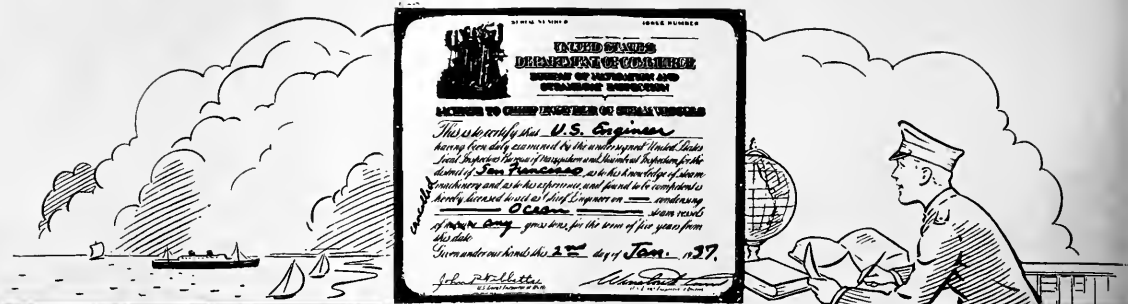 SERIAL NUMBER ISSUE NUMBER
UNITED STATES
DEPARTMENT OF COMMERCE
BUREAU OF NAVIGATION AND
STEAMBOAT INSPECTION
LICENSE TO CHIEF ENGINEER OF STEAM VESSELS
This is to certify that U.S. Engineer
having been duly examined by the undersigned United States
Local Inspectors Bureau of Navigation and Steamboat Inspection for the
district of San Francisco, as to his knowledge of steam
machinery and as to his experience, and found to be competent is
hereby licensed to act as Chief Engineer on condensing
Ocean steam vessels
of any gross tons, for the term of five years from
this date.
Given under our hands this 2nd day of Jan. 1937.
cancelled
U.S. Local Inspector of